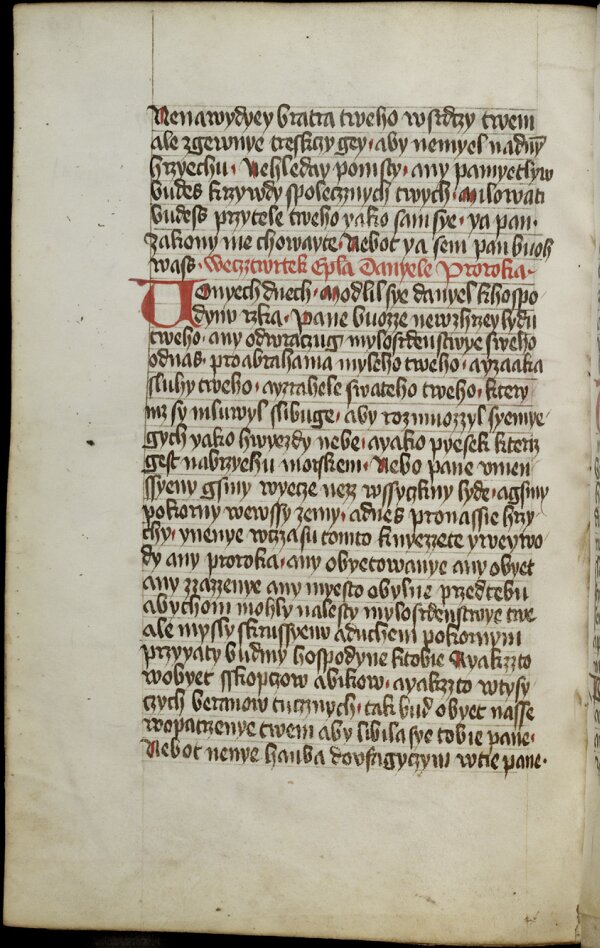 Nenawydyey bratra tweho wsrdczy twem
ale zgewnye treskczy gey· aby nemyel nadnym
hrzyechu· Nehleday pomsty· any pamyetlyw
budes krzywdy spolecznych twych· Milowati
budess przytele tweho yako sam sye· ya pan·
zakony me chowayte· Nebot ya sem pan buoh
wass· Wecztwrtek Epla Danyele Proroka·
Wonyech dnech· Modlil sye danyel khospo
dynu rzka· Pane buozze newzhrzey lydu
tweho· any odwraczug mylosrdenstwye sweho
odnas· proabrahama myleho tweho· ayzaaka
sluhy tweho· ayzrahele swateho tweho· ktery
mz sy mluwyl slibuge· aby rozmnozzyl syemye
gych yako hwyezdy nebe· ayako pyesek kteriz
gest nabrzyehu morskem· Nebo pane vmen
ssyeny gsmy wyecze nezz wssyczkny lyde· agsmy
pokorny wewssy zemy· adnes pronassie hrzy
chy· ynenye wczasu tomto knyezzete yweywo
dy any proroka· any obyetowanye any obyet
any zzazzenye any myesto obylne przedtebu
abychom mohly nalesty mylosrdenstwye twe
ale mysly skrussyenu aduchem pokornym
przyyaty budmy hospodyne ktobie Ayakzzto
wobyet sskopczow abikow· ayakzzto wtysy
czych beranow tucznych· tak bud obyet nasse
wopatrzenye twem aby libila sye tobie pane·
Nebot nenye hanba dovfagyczym wtie pane·